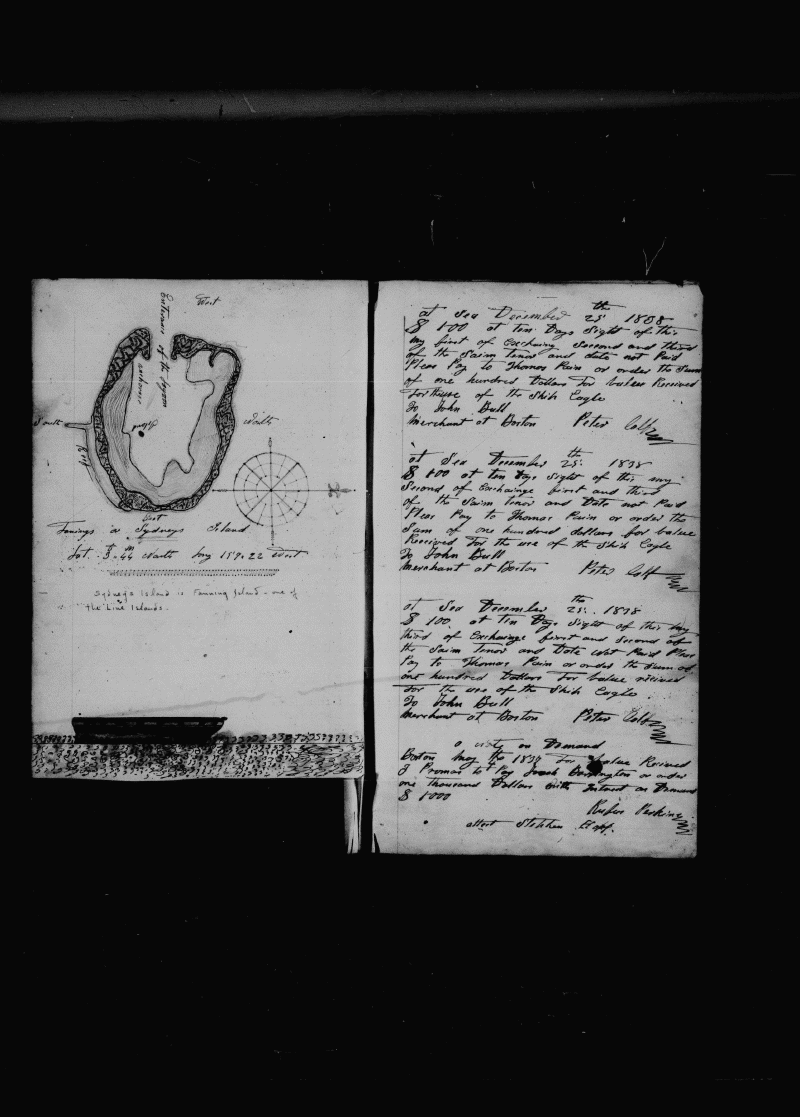 West
Enterance of the lagoon
anchorage
South
North
Reef
East
Fanings or Sydneys Island
Lat. 3.44 North Long 159.22 West
Sydneys Island is Fanning Island - one of
the Line Islands.
at Sea December 25th 1838
$ 100 at ten Days Sight of this
my first of Exchainge Second and third
of the Saim tenor and date not Paid
Pleas Pay to Thomas Pain or order the Sum
of one hundred Dollars for value Received
for the use of the Ship Eagle
To John Bull
Merchant at Boston Peter Colf
at Sea December 25th 1838
$ 100 at ten Days Sight of this my
Second of Exchainge first and third
of the Saim Tenor and Date not Paid
Pleas Pay to Thomas Pain or order the
Sum of one hundred dollars for value
Received for the use of the Ship Eagle
To John Bull
Merchant at Boston Peter Colf
at Sea December 25th 1838
$ 100 at ten Days Sight of this my
third of Exchainge first and Second of
the Saim Tenor and Date not Paid Pleas
Pay to Thomas Pain or order the Sum of
one hundred Dollars for value received
for the use of the Ship Eagle
To John Bull
Merchant at Boston Peter Colf
a note on Demand
Boston May the 1838 For value Recived
I Promas to Pay or order
one thousand Dollars with Interest on Demand
$ 1000
Rufus Perkins
attest Stephen